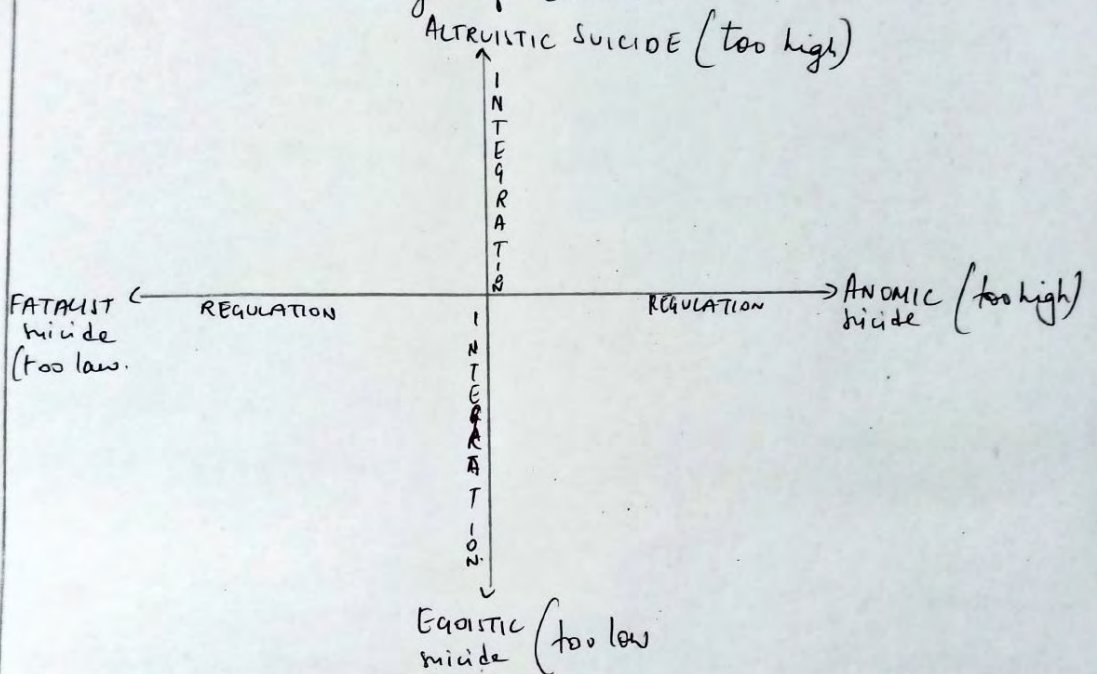 ALTRUISTIC SUICIDE (too high)
INTEGRATION
FATALIST
suicide
(too low.
REGULATION
REGULATION
ANOMIC (too high)
suicide
INTEGRATION.
EGOISTIC (too low
suicide